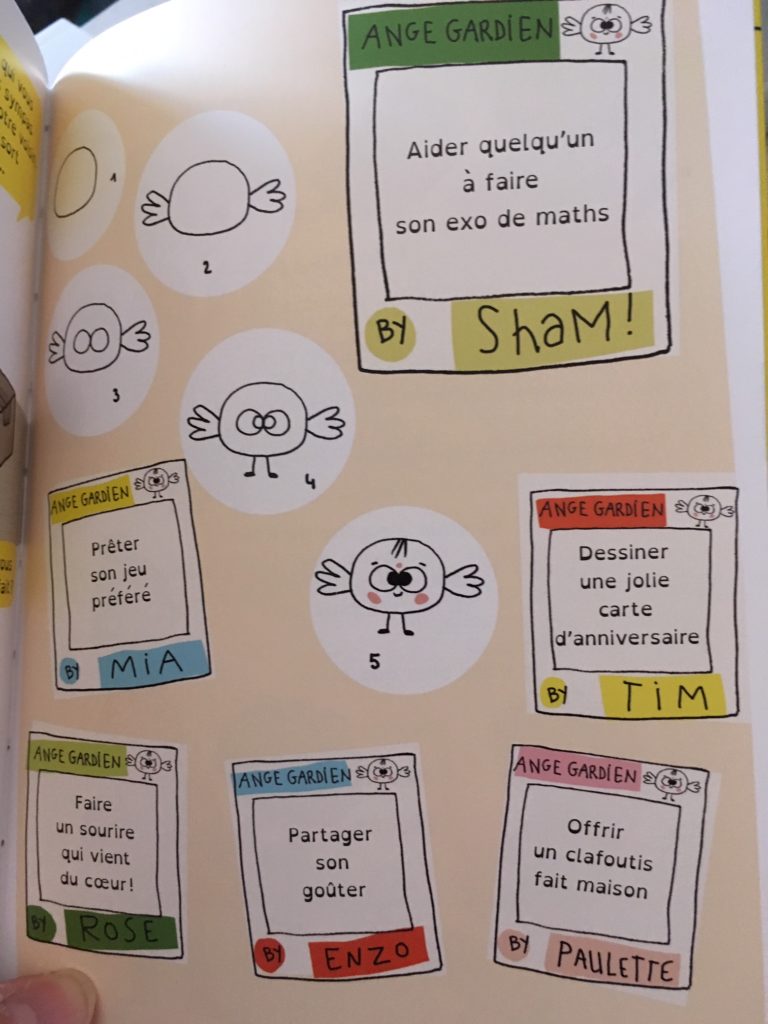 qui vous
sympas
sort
ANGE GARDIEN
Aider quelqu'un
à faire
son exo de maths
BY
SHAM!
1
2
3
4
5
ANGE GARDIEN
Prêter
son jeu
préféré
BY
MIA
ANGE GARDIEN
Dessiner
une jolie
carte
d'anniversaire
BY
TIM
ANGE GARDIEN
Faire
un sourire
qui vient
du cœur!
BY
ROSE
ANGE GARDIEN
Partager
son
goûter
BY
ENZO
ANGE GARDIEN
Offrir
un clafoutis
fait maison
BY
PAULETTE